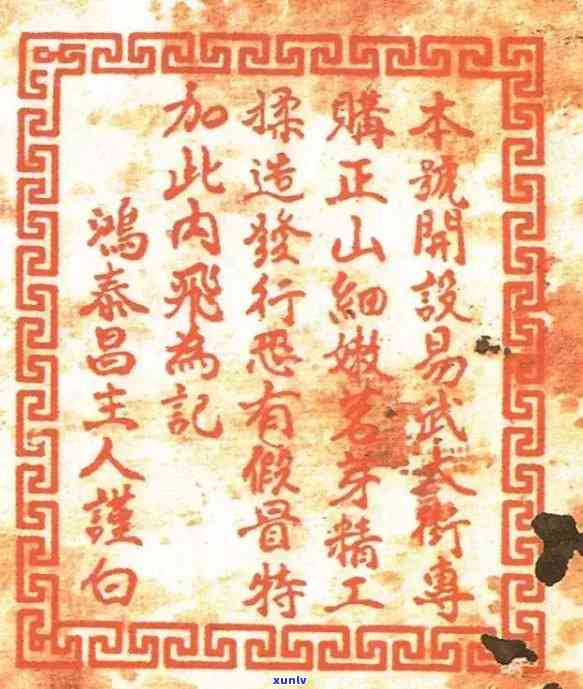 本號開設易武大街專
購正山細嫩茗芽精工
揉造發行恐有假冒特
加此内飛為記
鴻泰昌主人謹白
xunlv